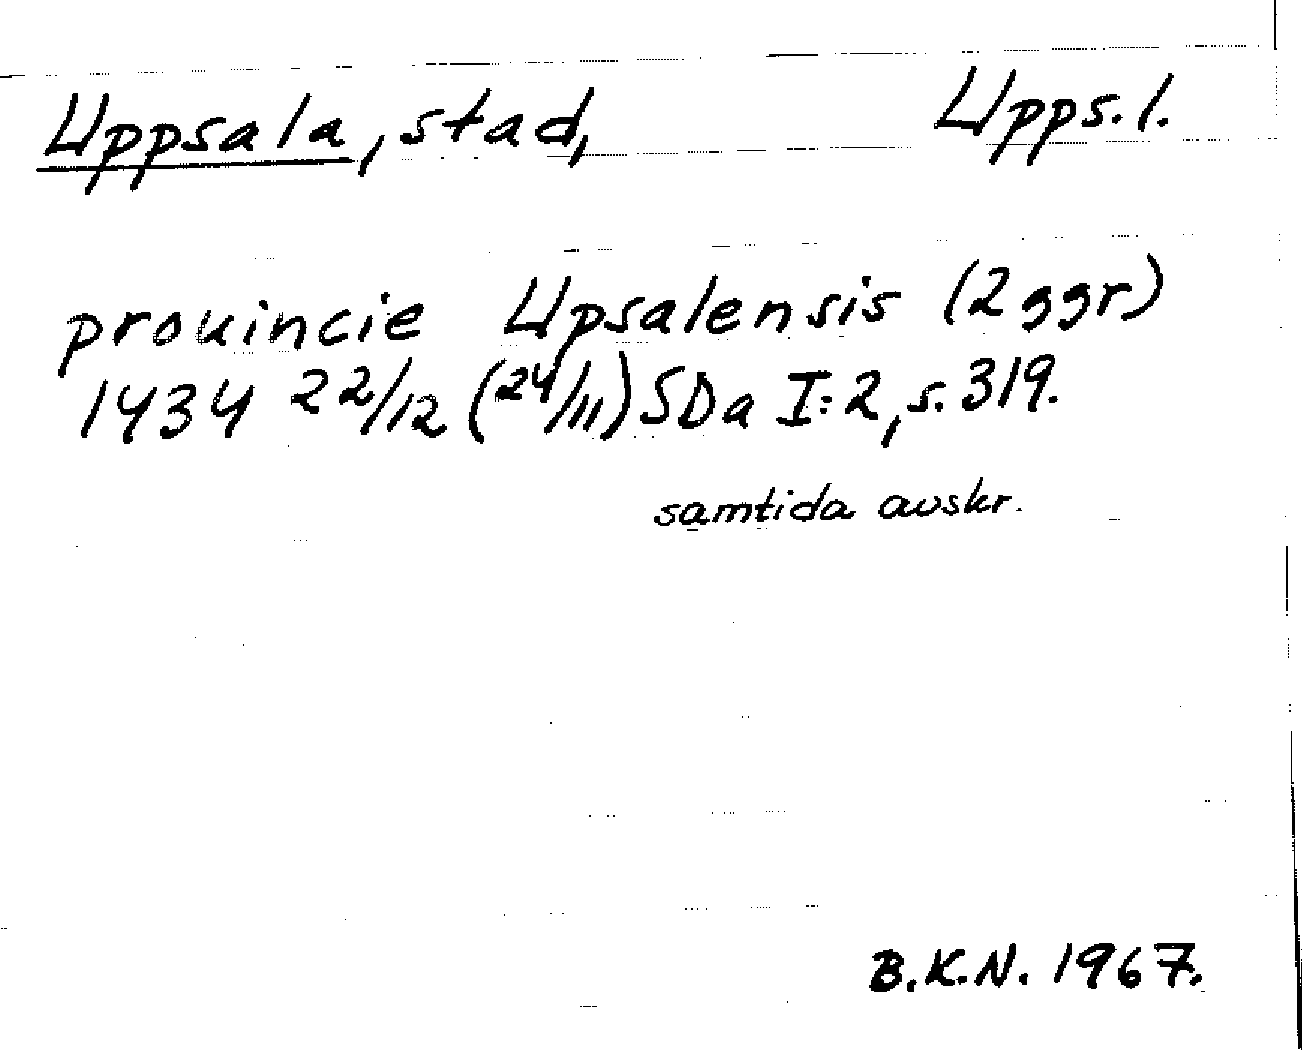 Uppsala, stad, Upps.l.
prouincie Upsalensis (2 ggr)
1434 22/12 (24/11) SDa I:2, s. 319.
samtida avskr.
B.K.N. 1967.